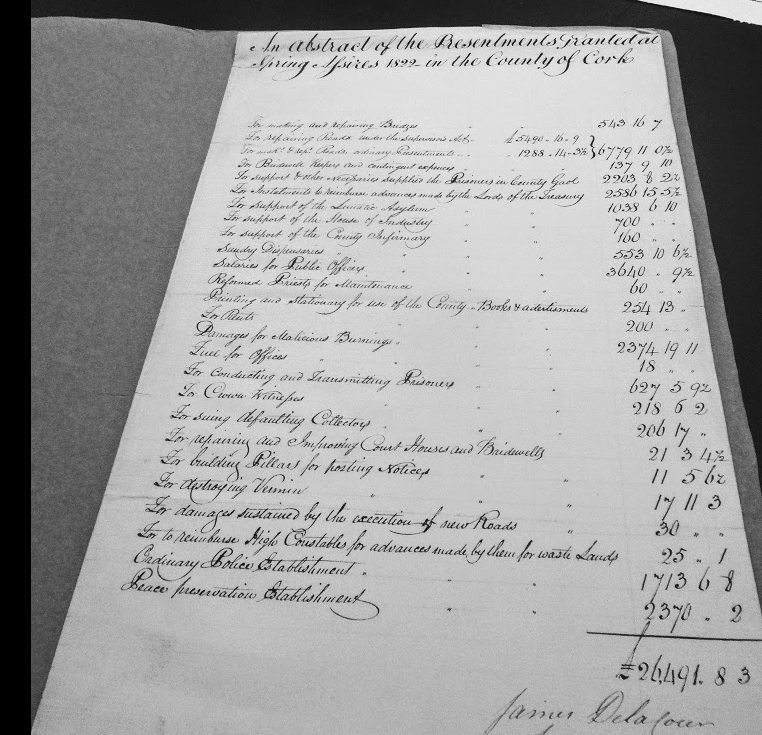 An Abstract of the Presentments Granted at
Spring Assizes 1822 in the County of Cork
For making and repairing Bridges " 543 16 7
For repairing Roads under the Supervisors Act £5490..16..9
For mak.g & rep.g Roads ordinary Presentments 1288..14..3½ } 6779 11 0½
For Bridewell keepers and contingent expences 137 9 10
For support & other Necessaries supplied the Prisoners in County Gaol 2203 8 2½
For Instalments to reimburse advances made by the Lords of the Treasury 2586 15 5½
For Support of the Lunatic Asylum " " 1038 6 10
For support of the House of Industry " " 700 " "
For support of the County Infirmary " " 160 " "
Sundry Dispensaries " " 553 10 6½
Salaries for Public Officers " " 3640 " 9½
Reformed Priests for Maintenance " " 60 " "
Printing and Stationary for use of the County " Books & advertisments 254 13 "
For Rents " " 200 " "
Damages for Malicious Burnings " " 2374 19 11
Fuel for Offices " " 18 " "
For conducting and Transmitting Prisoners " " 627 5 9½
For Crown Witnesses " " 218 6 2
For suing defaulting Collectors " " 206 17 "
For repairing and Improving Court Houses and Bridewells " 21 3 4½
For building Pillars for posting Notices " " 11 5 6½
For destroying Vermin " " 17 11 3
For damages sustained by the execution of new Roads " 30 " "
For to reimburse High Constables for advances made by them for waste Lands 25 " 1
Ordinary Police Establishment " " 1713 6 8
Peace preservation Establishment " " 2370 " 2
£26,491. 8 3
James Delacour